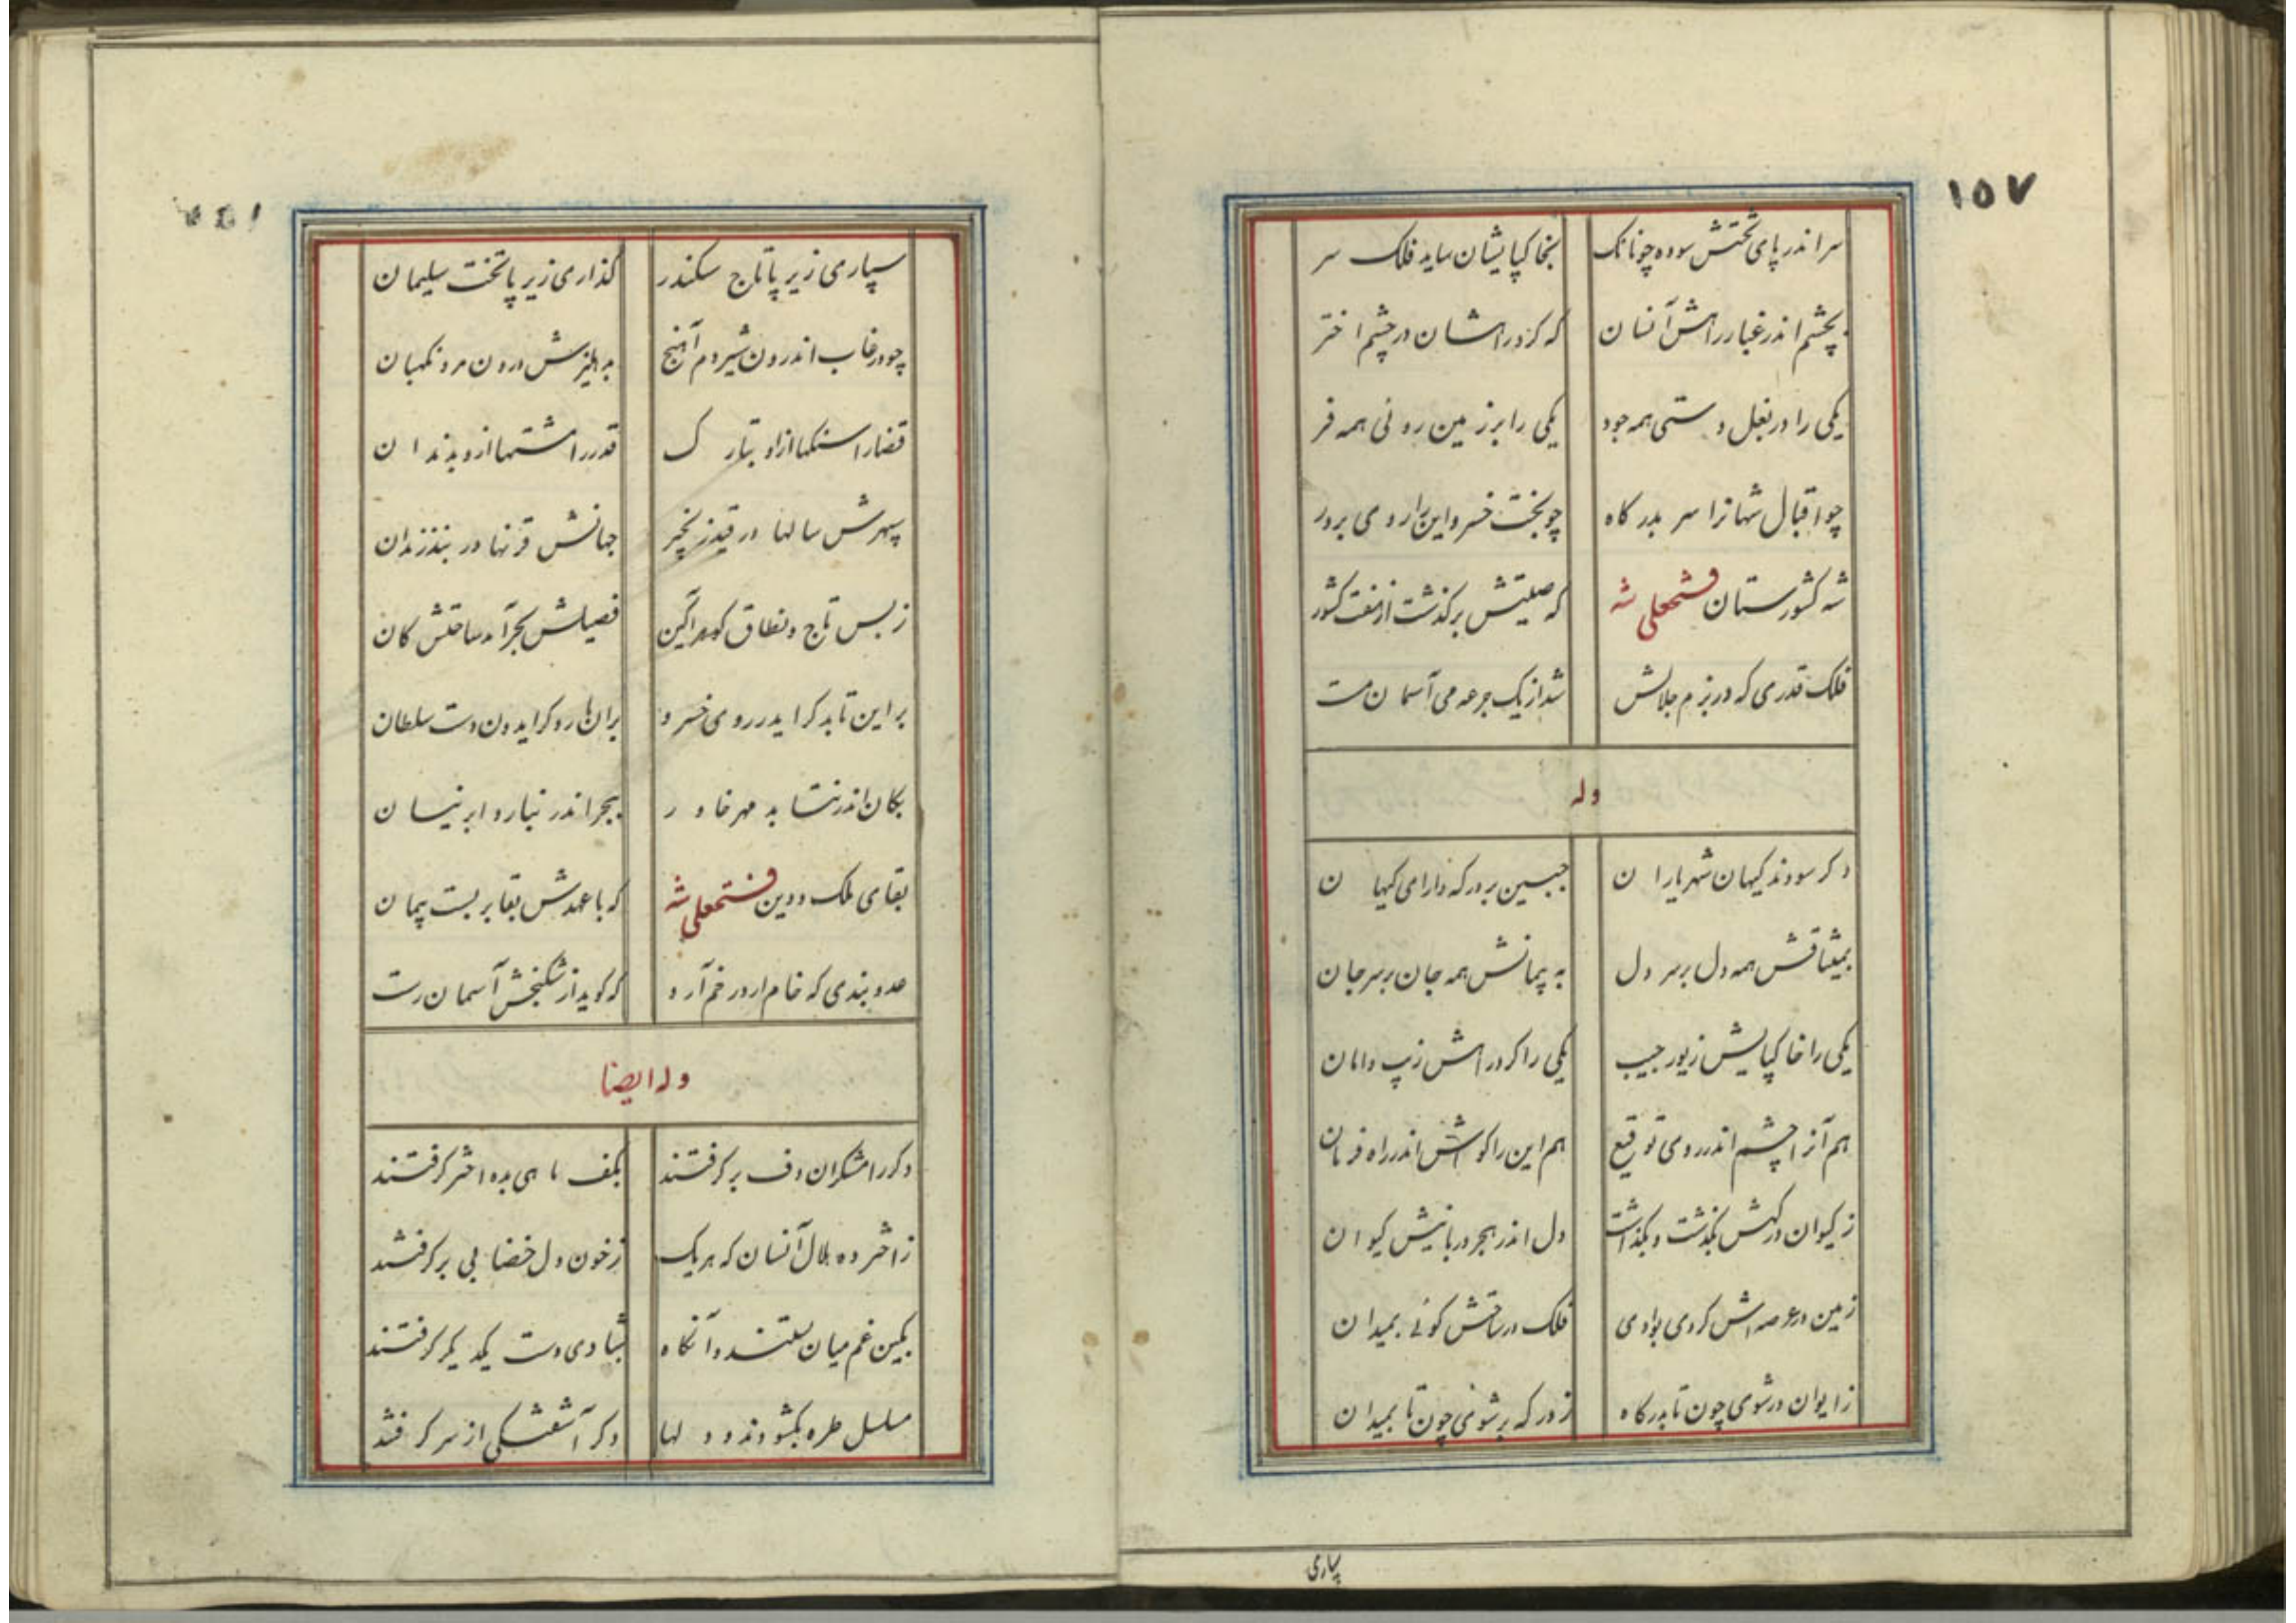 ۱۵۷
سر اندر پای تختش سوده چونانک بخاکپایشان ساید فلک سر
بچشم اندر غبار راهش آنسان که گرد راهشان در چشم اختر
یکی را در بغل دستی همه جود یکی را بر زمین روئی همه فر
چو اقبال شهانرا سر بدرگاه چو بخت خسرو این را روی بر در
شه کشورستان فتحعلی شه که صیتش برگذشت از هفت کشور
فلک قدری که در بزم جلالش شد از یک جرعه می آسمان مست
وله
دگر سودند کیهان شهریاران جبین بر درگه دارای کیهان
بمیثاقش همه دل بر سر دل به پیمانش همه جان بر سر جان
یکی را خاکپایش زیور جیب یکی را گرد راهش زیب دامان
هم آنرا چشم اندر روی توقیع هم این را گوش اندر راه فرمان
ز کیوان درگهش بگذشت و بگذاشت دل اندر هجر دربانیش کیوان
زمین در عرصه‌اش گردی بوادی فلک در ساحتش گوئی بمیدان
ز ایوان در شوی چون تا بدرگاه ز درگه بر شوی چون تا بمیدان
سپاری
سپاری زیر پا تاج سکندر گذاری زیر پا تخت سلیمان
چو در غاب اندرون شیر دم آهنج به دهلیزش درون مرد نگهبان
قضا را سنگها از او بتارک قدر را مشتها از او بدندان
سپهرش سالها در قید زنجیر جهانش قرنها در بند زندان
ز بس تاج و نطاق گوهر آگین فصیلش بحر آمد ساحتش کان
بر این تابد گر ایدر روی خسرو بر آن بارد گر ایدون دست سلطان
بکان اندر نتابد مهر خاور ببحر اندر نبارد ابر نیسان
بقای ملک و دین فتحعلی شه که با عهدش بقا بر بست پیمان
عدو بندی که خام ار در خم آرد که گوید از شکنجش آسمان رست
وله ایضا
دگر رامشگران دف بر گرفتند بکف ماهی بده اختر گرفتند
ز اختر ده هلال آنسان که هر یک ز خون دل خضابی بر گرفتند
بکین غم میان بستند و آنگاه بشادی دست یکدیگر گرفتند
مسلسل طره بگشودند و دلها دگر آشفتگی از سر گرفتند